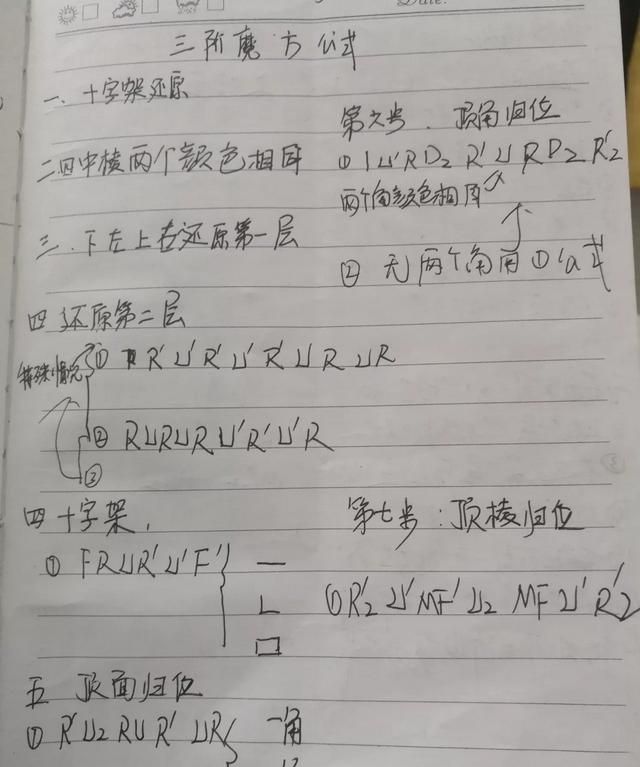 Date:
三阶魔方公式
一、十字架还原
二四中棱两个颜色相同
三、下左上右还原第一层
四 还原第二层
特殊情况
① R'U'R'U'R'URUR
② RURURU'R'U'R
③
四 十字架,
① FRUR'U'F'
一
L
口
五 顶面归位
① R'U2RUR'UR
一角
第六步、顶角归位
① U'RD2R'URD2R'2
两个角颜色相同
② 无两个角用①公式
第七步:顶棱归位
① R'2U'MF'U2MFU'R'2